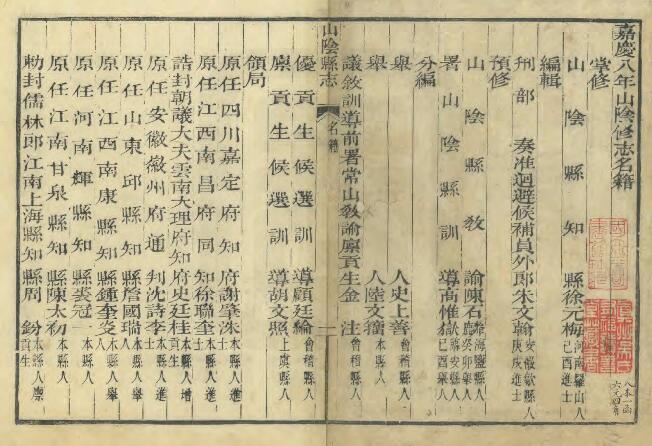 嘉慶八年山陰修志名籍
掌修
山陰縣知縣徐元梅河南羅山人己酉進士
編輯
刑部 奏准迴避候補員外郎朱文翰安徽歙縣人庚戌進士
預修
山陰縣敎諭陳石麟海鹽縣人癸卯舉人
署山陰縣訓導高惟嶽臨安縣人己酉
分編
舉人史上善會稽縣人
舉人陸文本縣人
議敘訓導前署常山敎諭廩貢生金注
山陰縣志
名籍
優貢生候選訓導顧廷綸會稽縣人
廩貢生候選訓導胡文照上虞縣人
領局
原任四川嘉定府知府謝肇洙本縣人進士
原任江西南昌府同知徐聯奎本縣人進士
誥封朝議大夫雲南大理府知府史廷桂本縣人增貢生
原任安徽徽州府通判沈詩李本縣人進士
原任山東邱縣知縣詹國瑞本縣人舉人
原任江西南康縣知縣鍾奎本縣人舉人
原任河南輝縣知縣裘冠一本縣人
原任江南甘泉縣知縣陳太初本縣人
勅封儒林郎江南上海縣知縣周鈖本縣人廩貢生
八本一函
六元四角